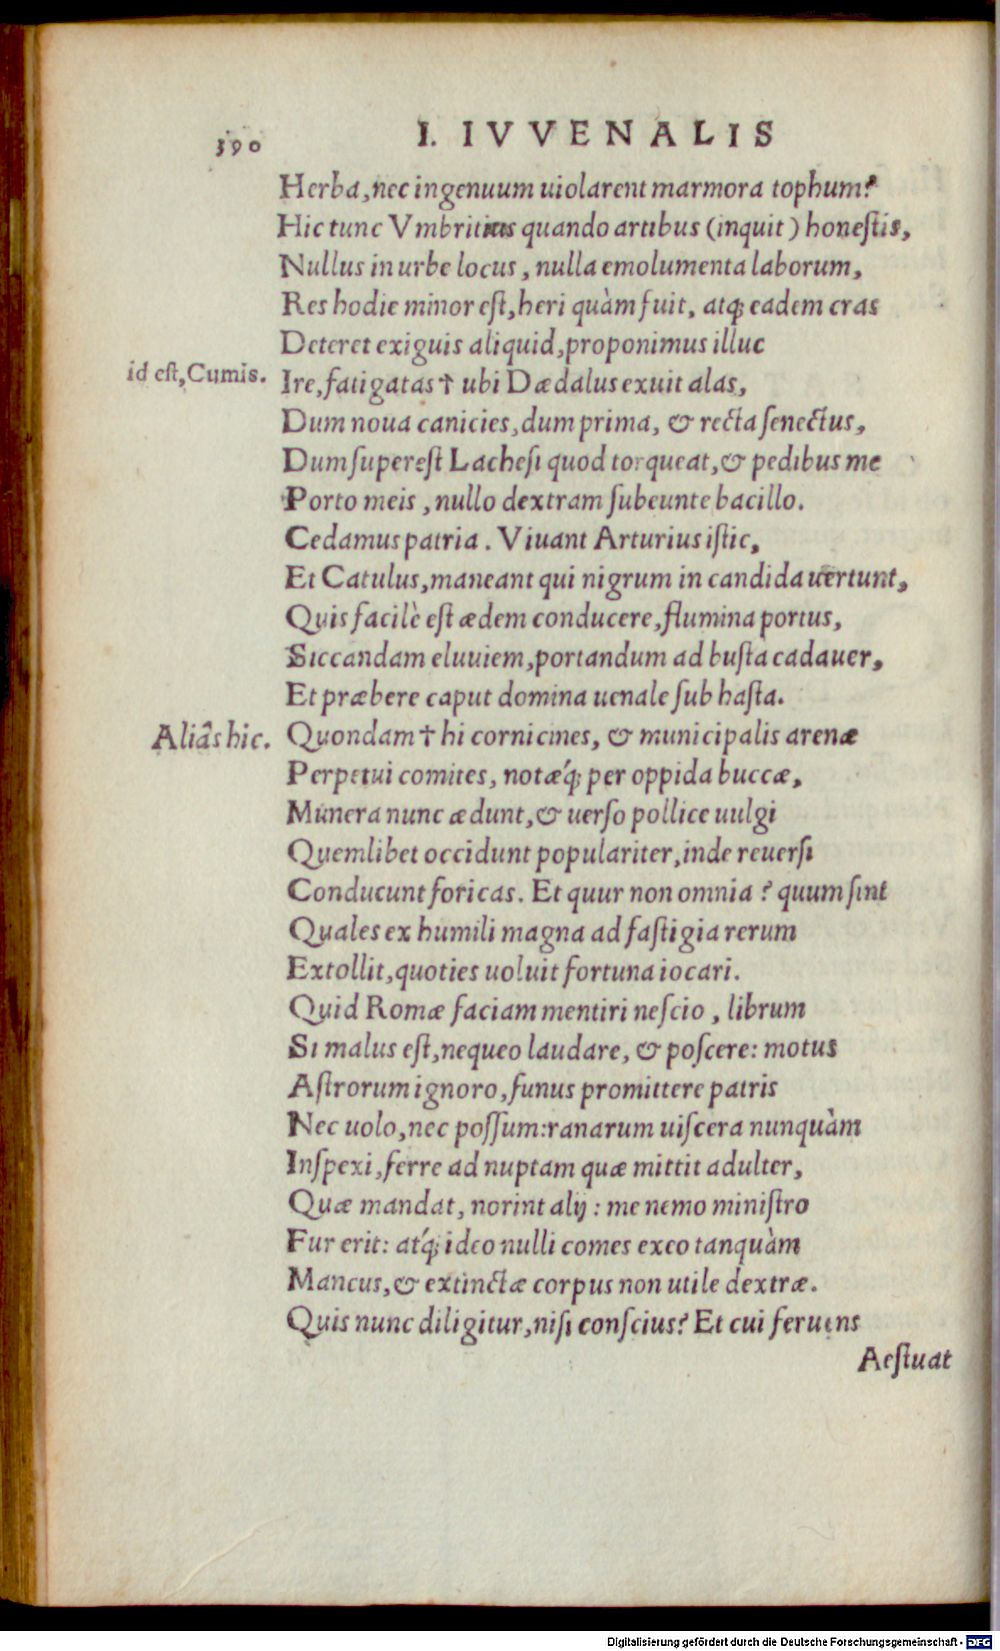 390
I. IVVENALIS
Herba, nec ingenuum uiolarent marmora tophum?
Hic tunc Vmbritius quando artibus (inquit) honeſtis,
Nullus in urbe locus, nulla emolumenta laborum,
Res hodie minor eſt, heri quàm fuit, atq; eadem cras
Deteret exiguis aliquid, proponimus illuc
id eſt, Cumis.
Ire, fatigatas † ubi Dædalus exuit alas,
Dum noua canicies, dum prima, & recta ſenectus,
Dum ſupereſt Lacheſi quod torqueat, & pedibus me
Porto meis, nullo dextram ſubeunte bacillo.
Cedamus patria. Viuant Arturius iſtic,
Et Catulus, maneant qui nigrum in candida uertunt,
Quis facilè eſt ædem conducere, flumina portus,
Siccandam eluuiem, portandum ad buſta cadauer,
Et præbere caput domina uenale ſub haſta.
Aliâs hic.
Quondam † hi cornicines, & municipalis arenæ
Perpetui comites, notæq́; per oppida buccæ,
Munera nunc ædunt, & uerſo pollice uulgi
Quemlibet occidunt populariter, inde reuerſi
Conducunt foricas. Et quur non omnia? quum ſint
Quales ex humili magna ad faſtigia rerum
Extollit, quoties uoluit fortuna iocari.
Quid Romæ faciam mentiri neſcio, librum
Si malus eſt, nequeo laudare, & poſcere: motus
Aſtrorum ignoro, funus promittere patris
Nec uolo, nec poſſum: ranarum uiſcera nunquàm
Inſpexi, ferre ad nuptam quæ mittit adulter,
Quæ mandat, norint alij: me nemo miniſtro
Fur erit: atq́; ideo nulli comes exeo tanquàm
Mancus, & extinctæ corpus non utile dextræ.
Quis nunc diligitur, niſi conſcius? Et cui feruens
Aeſtuat
Digitalisierung gefördert durch die Deutsche Forschungsgemeinschaft - DFG